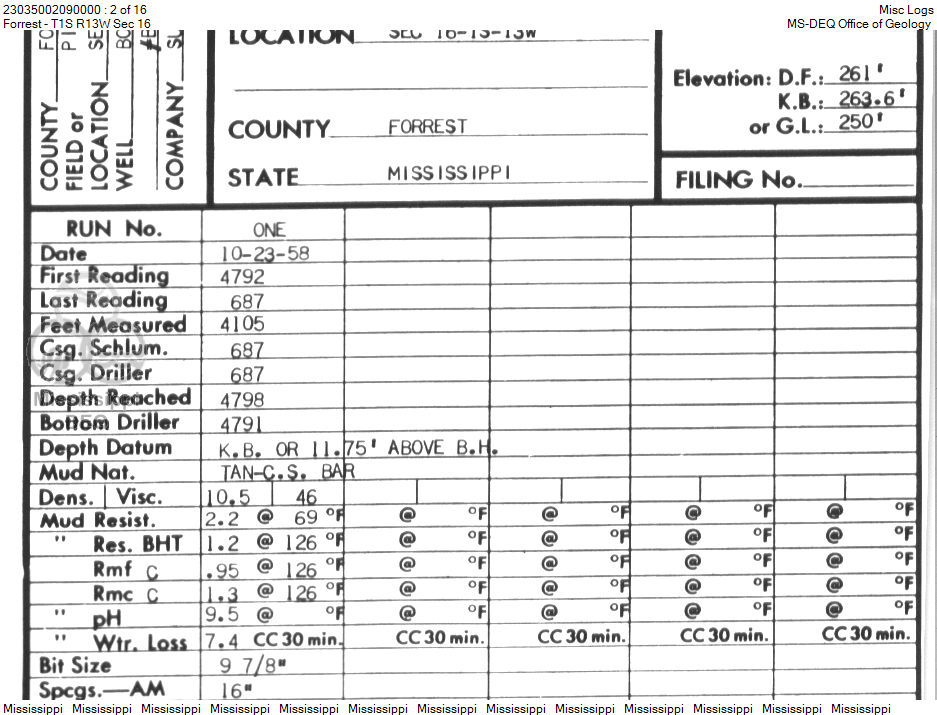 23035002090000 : 2 of 16
Misc Logs
Forrest - T1S R13W Sec 16
MS-DEQ Office of Geology
COUNTY
FIELD or
LOCATION
WELL
COMPANY
LOCATION SEC 16-1S-13W
COUNTY FORREST
STATE MISSISSIPPI
Elevation: D.F.: 261'
K.B.: 263.6'
or G.L.: 250'
FILING No.
RUN No. ONE
Date 10-23-58
First Reading 4792
Last Reading 687
Feet Measured 4105
Csg. Schlum. 687
Csg. Driller 687
Depth Reached 4798
Bottom Driller 4791
Depth Datum K.B. OR 11.75' ABOVE B.H.
Mud Nat. TAN-C.S. BAR
Dens. | Visc. 10.5 | 46
Mud Resist. 2.2 @ 69 °F @ °F @ °F @ °F @ °F
" Res. BHT 1.2 @ 126 °F @ °F @ °F @ °F @ °F
Rmf C .95 @ 126 °F @ °F @ °F @ °F @ °F
Rmc C 1.3 @ 126 °F @ °F @ °F @ °F @ °F
" pH 9.5 @ °F @ °F @ °F @ °F @ °F
" Wtr. Loss 7.4 CC 30 min. CC 30 min. CC 30 min. CC 30 min. CC 30 min.
Bit Size 9 7/8"
Spcgs.—AM 16"
Mississippi Mississippi Mississippi Mississippi Mississippi Mississippi Mississippi Mississippi Mississippi Mississippi Mississippi Mississippi Mississippi